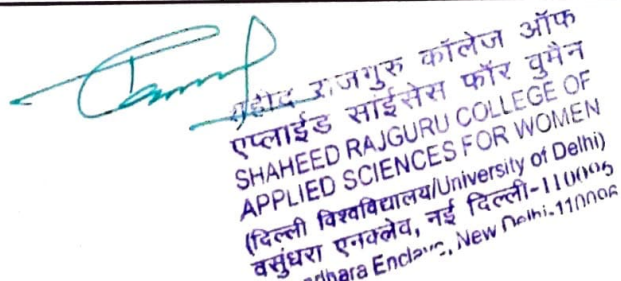 शहीद राजगुरु कॉलेज ऑफ
एप्लाईड साईसेस फॉर वुमैन
SHAHEED RAJGURU COLLEGE OF
APPLIED SCIENCES FOR WOMEN
(दिल्ली विश्वविद्यालय/University of Delhi)
वसुंधरा एनक्लेव, नई दिल्ली-110096
New Delhi-110096